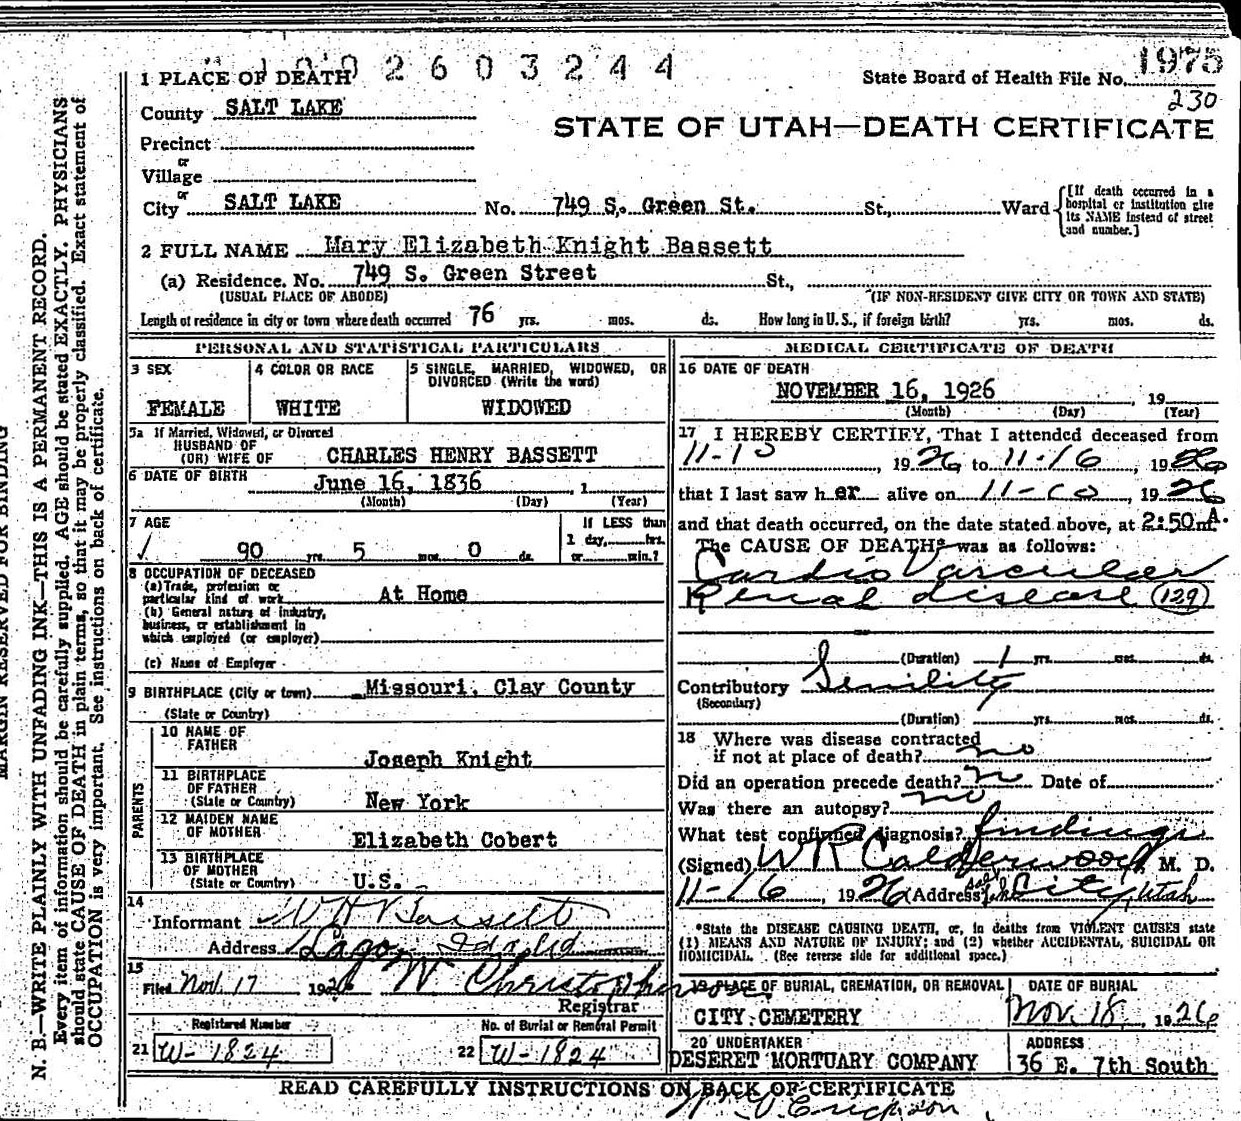 2603244
1 PLACE OF DEATH
State Board of Health File No. 1975
230
County SALT LAKE
STATE OF UTAH—DEATH CERTIFICATE
Precinct
or
Village
or
City SALT LAKE No. 749 S. Green St. St., Ward [If death occurred in a hospital or institution give its NAME instead of street and number.]
2 FULL NAME Mary Elizabeth Knight Bassett
(a) Residence. No. 749 S. Green Street St.,
(USUAL PLACE OF ABODE) (IF NON-RESIDENT GIVE CITY OR TOWN AND STATE)
Length of residence in city or town where death occurred 76 yrs. mos. ds. How long in U. S., if foreign birth? yrs. mos. ds.
PERSONAL AND STATISTICAL PARTICULARS
3 SEX
FEMALE
4 COLOR OR RACE
WHITE
5 SINGLE, MARRIED, WIDOWED, OR
DIVORCED (Write the word)
WIDOWED
5a If Married, Widowed, or Divorced
HUSBAND OF
(OR) WIFE OF CHARLES HENRY BASSETT
6 DATE OF BIRTH June 16, 1836 , 1
(Month) (Day) (Year)
7 AGE
90 yrs. 5 mos. 0 ds.
If LESS than
1 day, hrs.
or min.?
8 OCCUPATION OF DECEASED
(a) Trade, profession or
particular kind of work At Home
(b) General nature of industry,
business, or establishment in
which employed (or employer)
(c) Name of Employer
9 BIRTHPLACE (City or town) Missouri, Clay County
(State or Country)
PARENTS
10 NAME OF
FATHER
Joseph Knight
11 BIRTHPLACE
OF FATHER
(State or Country) New York
12 MAIDEN NAME
OF MOTHER
Elizabeth Cobert
13 BIRTHPLACE
OF MOTHER
(State or Country) U.S.
14
Informant W H Bassett
Address Lago, Idaho
15
Filed Nov. 17 1926 W Christopherson
Registrar
Registered Number
21 W-1824
No. of Burial or Removal Permit
22 W-1824
MEDICAL CERTIFICATE OF DEATH
16 DATE OF DEATH
NOVEMBER 16, 1926 , 19
(Month) (Day) (Year)
17 I HEREBY CERTIFY, That I attended deceased from
, 1926 to 11-16, 1926
that I last saw her alive on , 1926
and that death occurred, on the date stated above, at 2:50 A.m.
The CAUSE OF DEATH* was as follows:
Cardio Vascular
Renal disease (129)
(Duration) 1 yrs. mos. ds.
Contributory Senility
(Secondary)
(Duration) yrs. mos. ds.
18 Where was disease contracted
if not at place of death? no
Did an operation precede death? no Date of
Was there an autopsy? no
What test confirmed diagnosis? findings
(Signed) W R Calderwood, M. D.
11-16, 1926 Address Salt Lake City, Utah
*State the DISEASE CAUSING DEATH, or, in deaths from VIOLENT CAUSES state
(1) MEANS AND NATURE OF INJURY; and (2) whether ACCIDENTAL, SUICIDAL OR
HOMICIDAL. (See reverse side for additional space.)
19 PLACE OF BURIAL, CREMATION, OR REMOVAL
CITY CEMETERY
DATE OF BURIAL
Nov. 18, 1926
20 UNDERTAKER
DESERET MORTUARY COMPANY
ADDRESS
36 E. 7th South
READ CAREFULLY INSTRUCTIONS ON BACK OF CERTIFICATE
Erickson
MARGIN RESERVED FOR BINDING
N. B.—WRITE PLAINLY WITH UNFADING INK—THIS IS A PERMANENT RECORD.
Every item of information should be carefully supplied. AGE should be stated EXACTLY. PHYSICIANS
should state CAUSE OF DEATH in plain terms, so that it may be properly classified. Exact statement of
OCCUPATION is very important. See instructions on back of certificate.